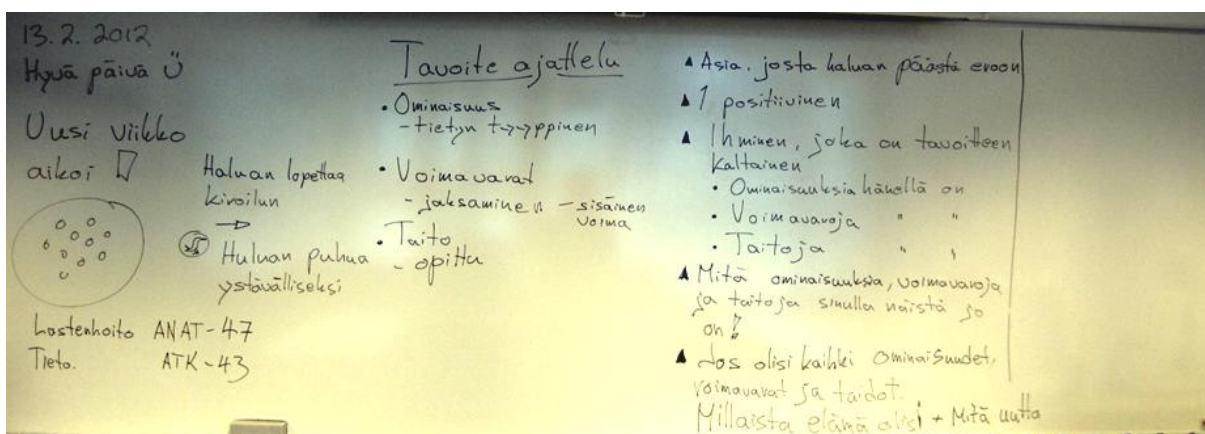 13.2.2012
Hyvä päivä Ü
Uusi viikko
aikoi !
Haluan lopettaa
kiroilun
→
Huluan puhua
ystävälliseksi
Lastenhoito ANAT-47
Tieto. ATK-43
Tavoite ajattelu
• Ominaisuus
- tietyn t→→ppinen
• Voimavarat
- jaksaminen - sisäinen
voima
• Taito
- opittu
▲ Asia. josta haluan päästä eroon
▲ 1 positiivinen
▲ Ihminen, joka on tavoitteen
kaltainen
• Ominaisuuksia hänellä on
• Voimavaroja " "
• Taitoja " "
▲ Mitä ominaisuuksia, voimavaroja
ja taitoja sinulla näistä jo
on !
▲ Jos olisi kaikki ominaisuudet,
voimavarat ja taidot.
Millaista elämä olisi + Mitä uutta